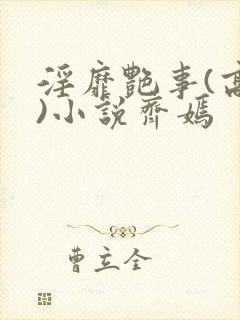 淫靡艷事(高
)小說齊嫣
曹立全